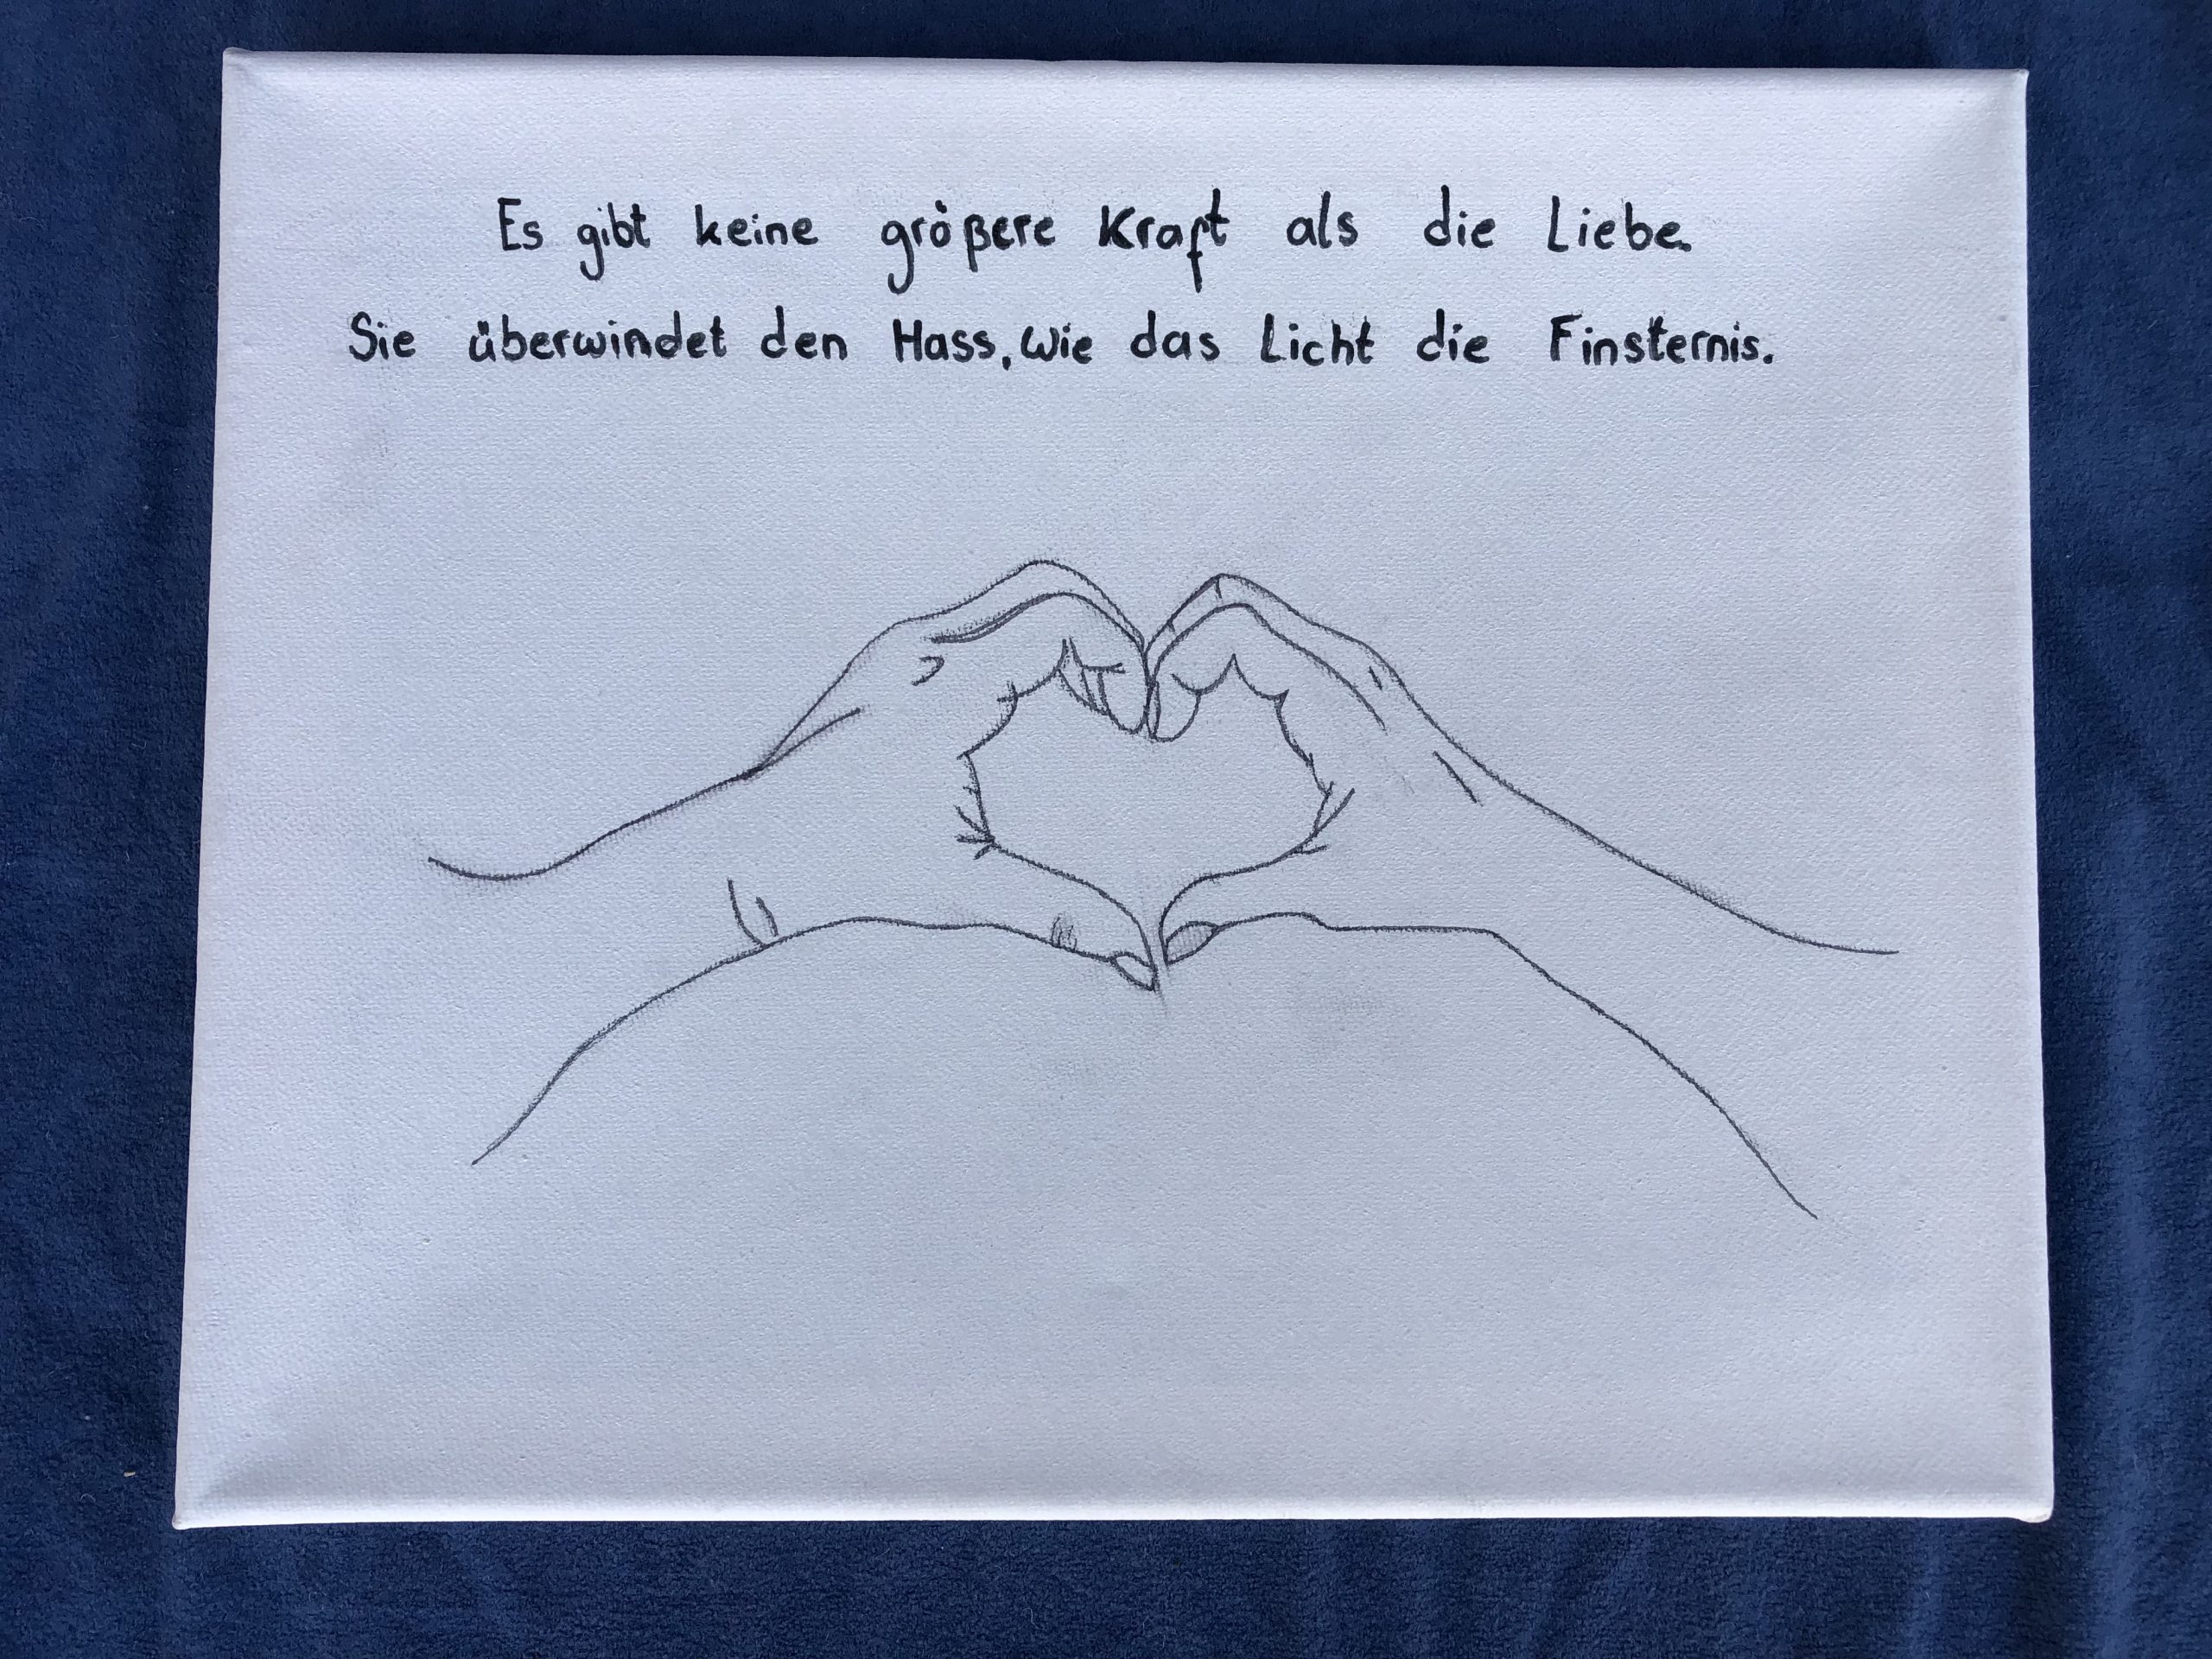 Es gibt keine größere Kraft als die Liebe.
Sie überwindet den Hass, wie das Licht die Finsternis.